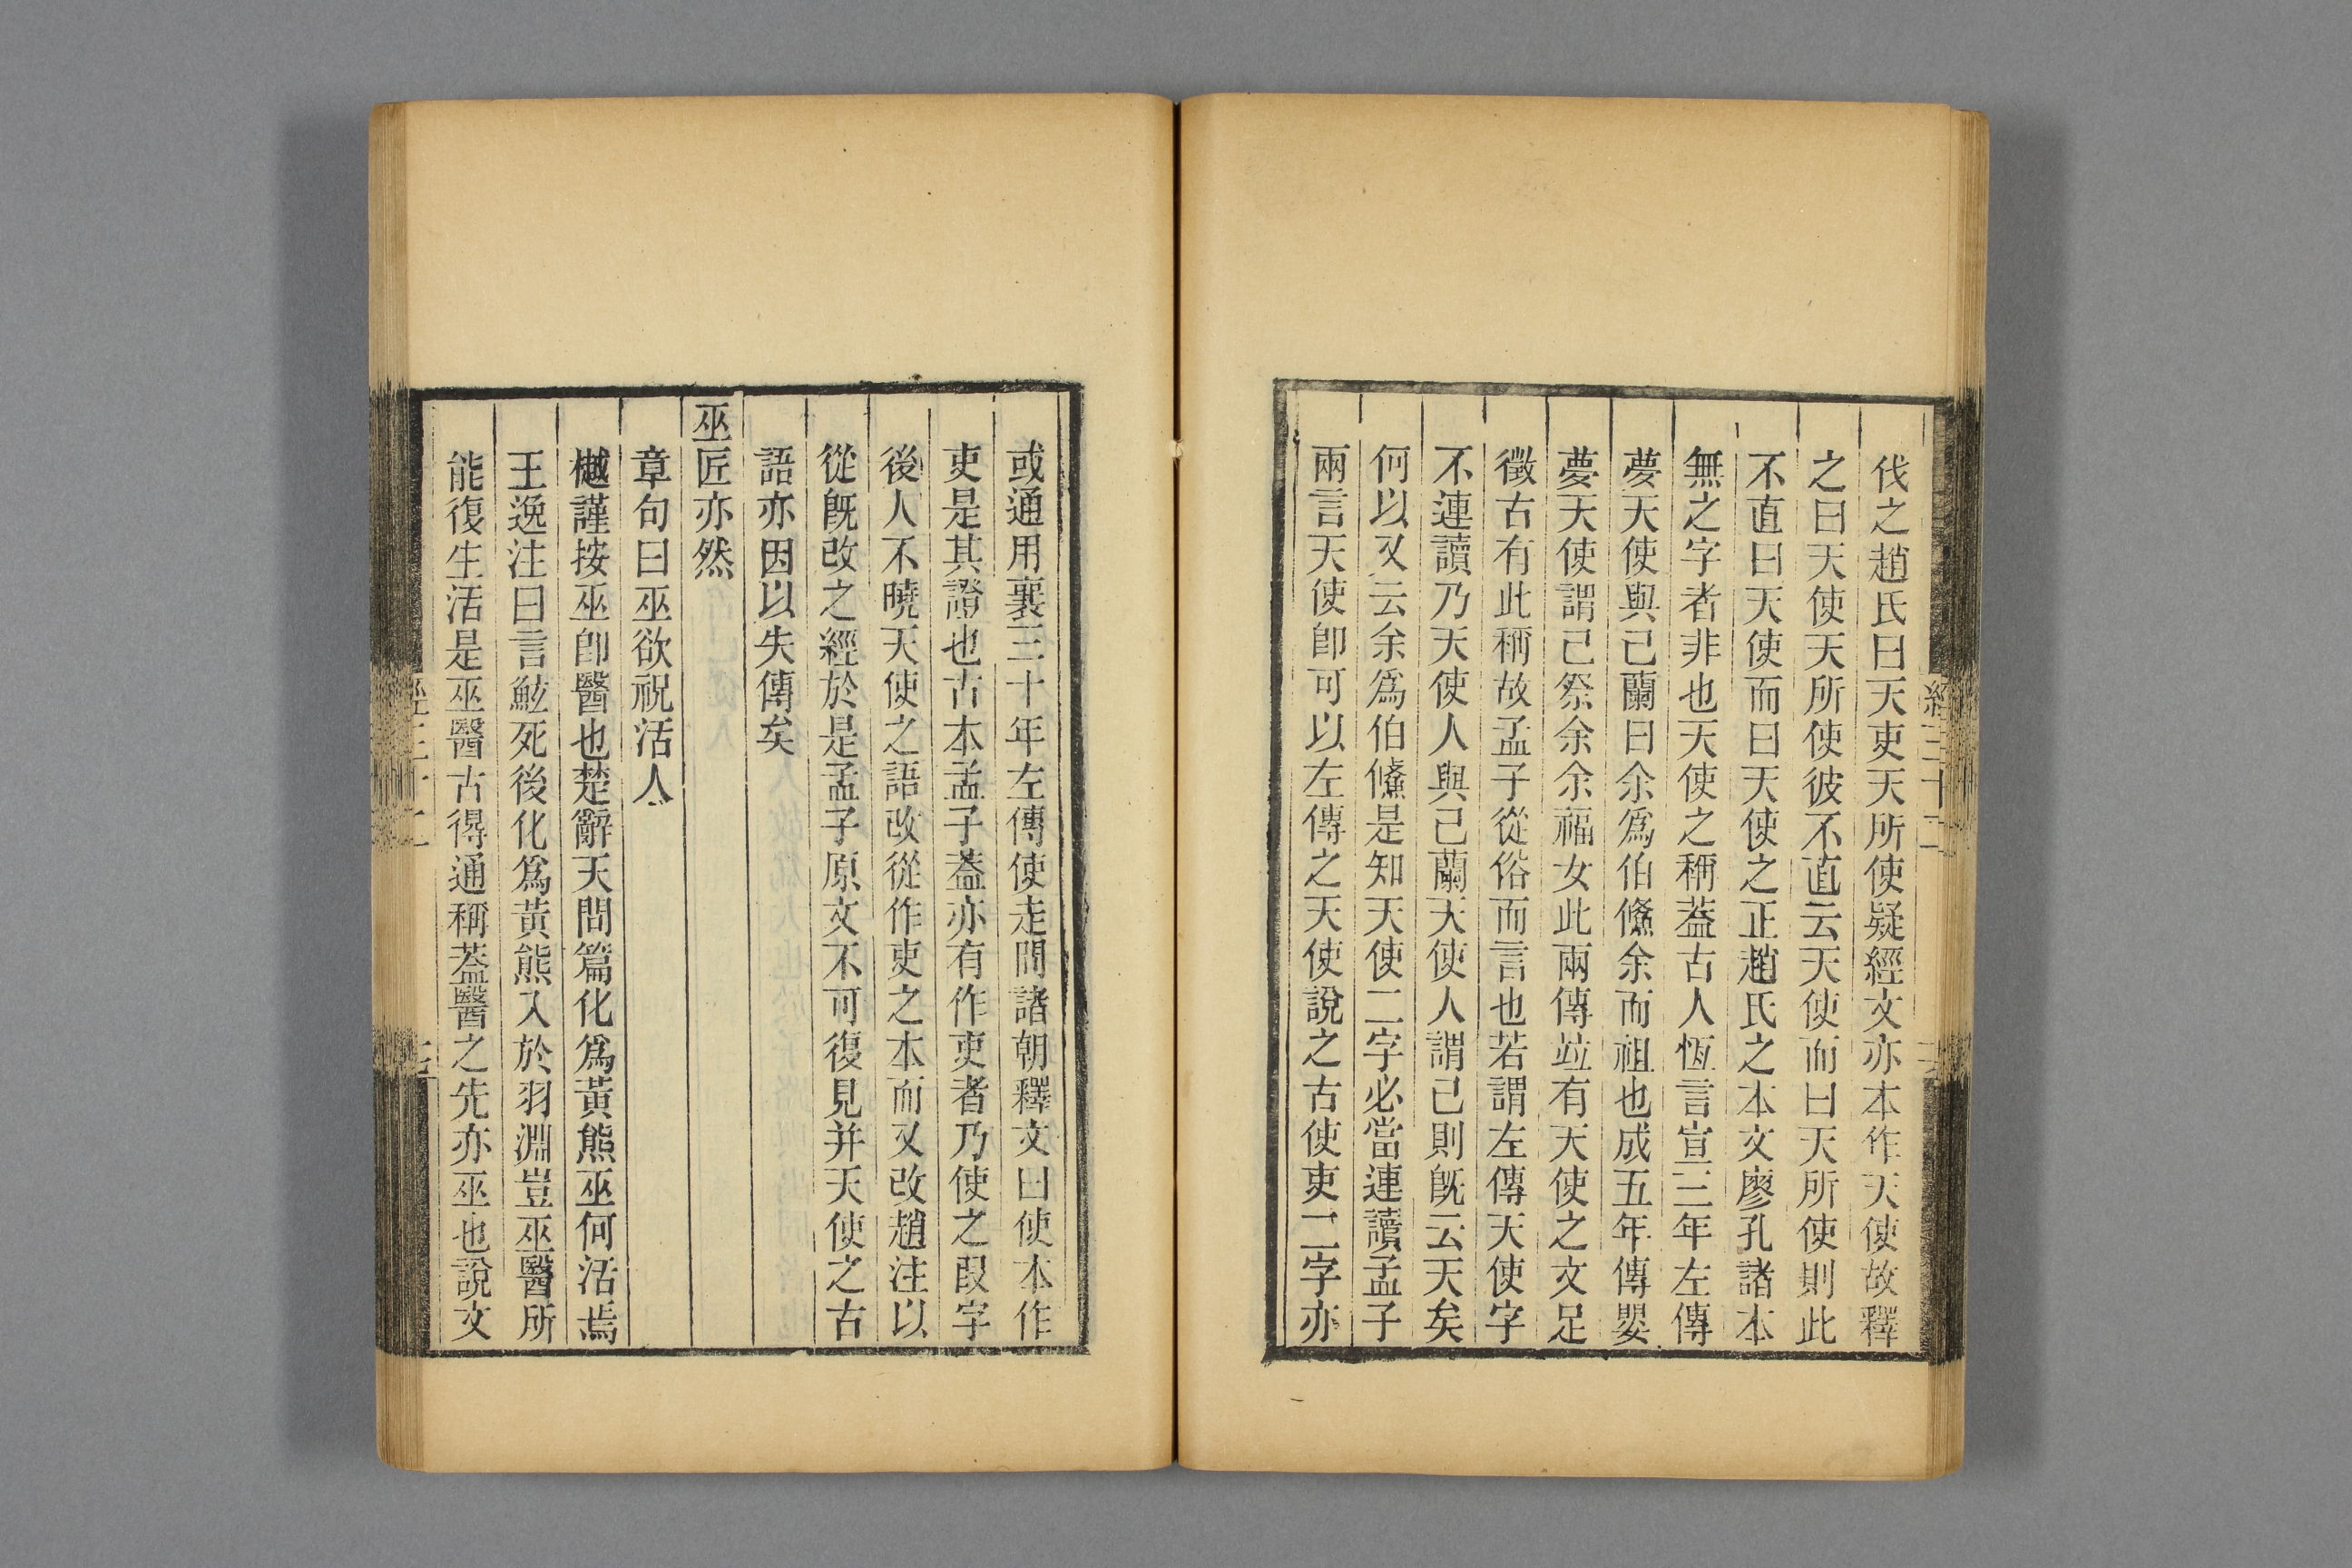 伐之趙氏曰天吏天所使疑經文亦本作天使故釋
之曰天使天所使彼不直云天使而曰天所使則此
不直曰天使而曰天使之正趙氏之本文廖孔諸本
無之字者非也天使之稱葢古人恆言宣三年左傳
夢天使與己蘭曰余爲伯鯈余而祖也成五年傳嬰
夢天使謂己祭余余福女此兩傳竝有天使之文足
徵古有此稱故孟子從俗而言也若謂左傳天使字
不連讀乃天使人與己蘭天使人謂己則旣云天矣
何以又云余爲伯鯈是知天使二字必當連讀孟子
兩言天使卽可以左傳之天使說之古使吏二字亦
或通用襄三十年左傳使走問諸朝釋文曰使本作
吏是其證也古本孟子葢亦有作吏者乃使之叚字
後人不曉天使之語改從作吏之本而又改趙注以
從旣改之經於是孟子原文不可復見并天使之古
語亦因以失傳矣
巫匠亦然
章句曰巫欲祝活人
樾謹按巫卽醫也楚辭天問篇化爲黃熊巫何活焉
王逸注曰言鮌死後化爲黃熊入於羽淵豈巫醫所
能復生活是巫醫古得通稱葢醫之先亦巫也說文
經三十二